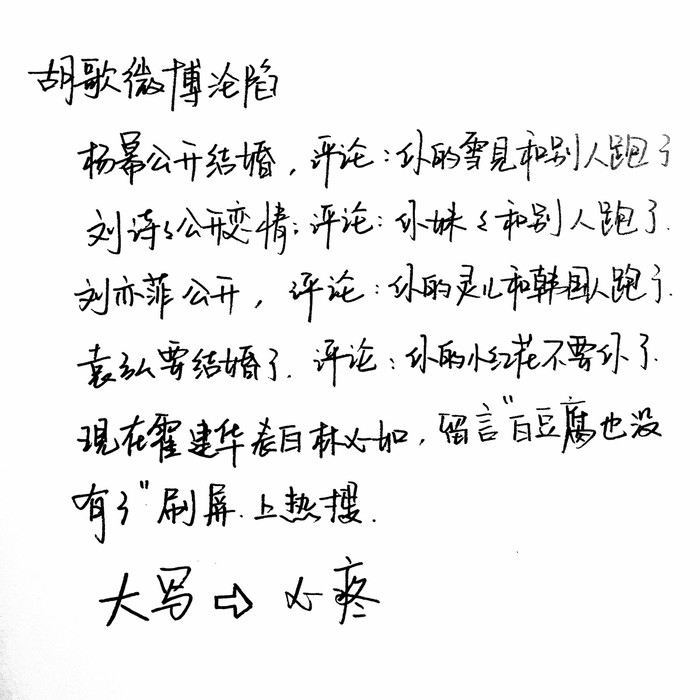 胡歌微博沦陷
杨幂公开结婚，评论：你的雪见和别人跑了
刘诗诗公开恋情；评论：你妹妹和别人跑了.
刘亦菲公开，评论：你的灵儿和韩国人跑了.
袁弘要结婚了.评论：你的小红花不要你了.
现在霍建华表白林心如，留言"白豆腐也没
有了"刷屏.上热搜.
大写⇨心疼